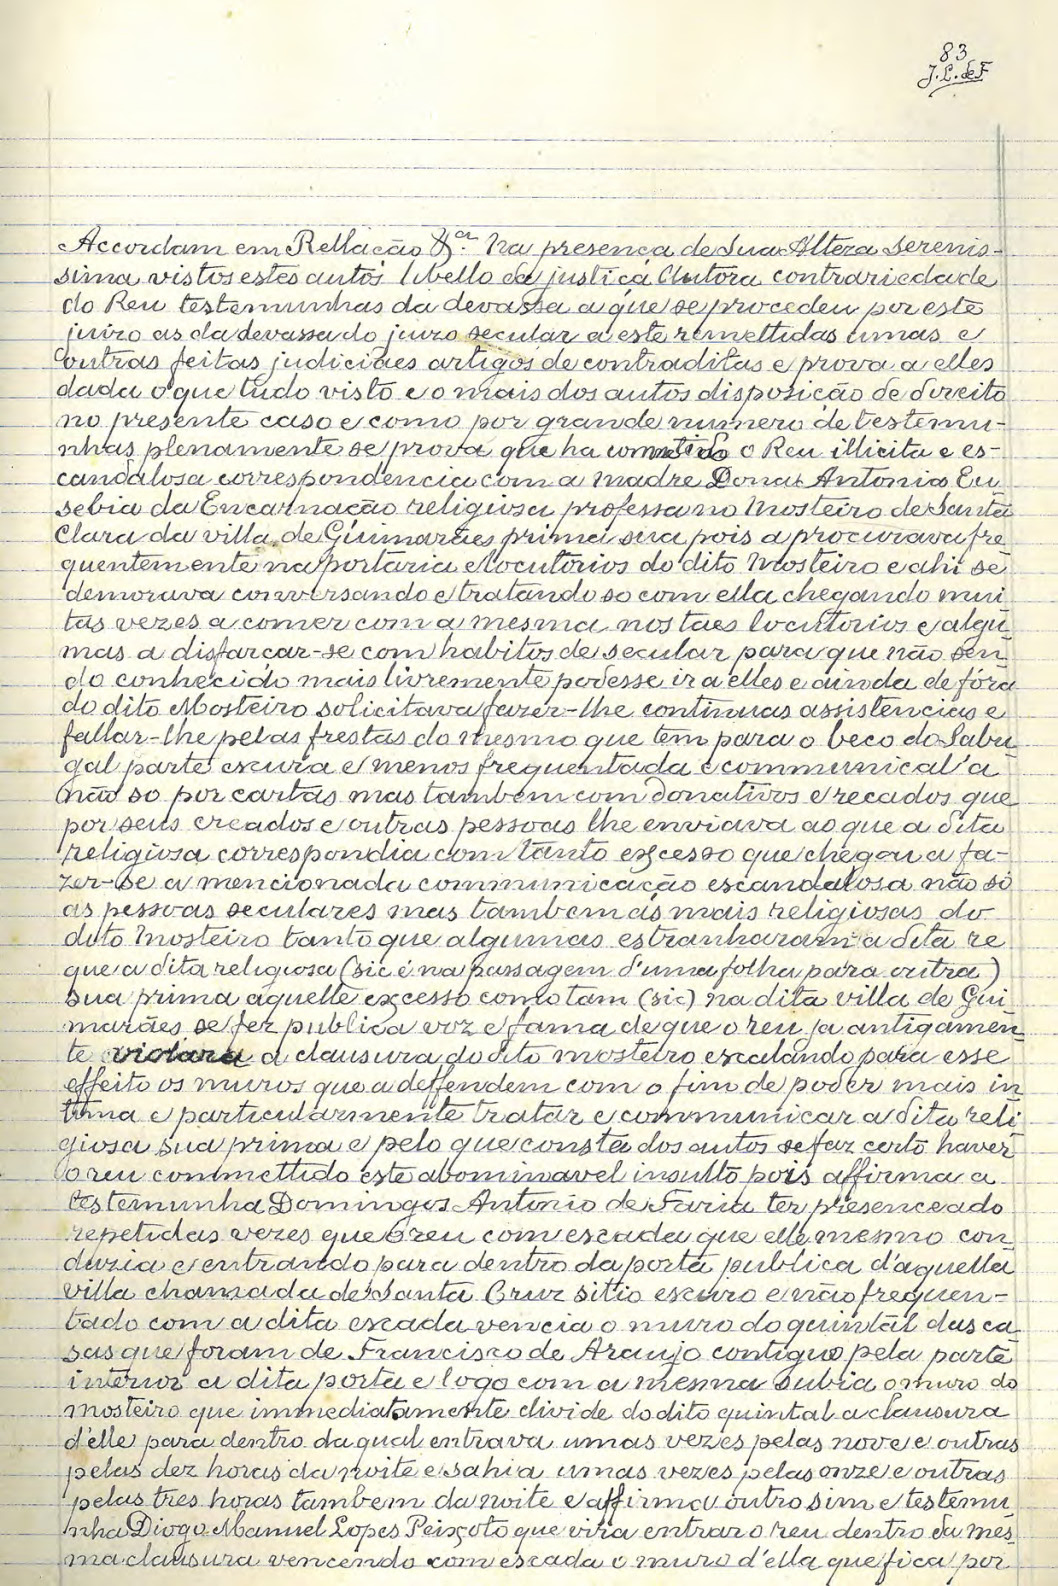 83
J. L. de F
Accordam em Rellação &ª. Na presença de Sua Alteza Serenis-
sima vistos estes autos libello da justiça Autora contrariedade
do Reu testemunhas da devassa a que se procedeu por este
juizo as da devassa do juizo secular a este remettidas umas e
outras feitas judiciaes artigos de contraditas e prova a elles
dada o que tudo visto e o mais dos autos disposição de direito
no presente caso e como por grande numero de testemu-
nhas plenamente se prova que ha comettido o Reu illicita e es-
candalosa correspondencia com a madre Dona Antonia Eu
sebia da Encarnação religiosa professa no Mosteiro de Santa
Clara da villa de Guimarães prima sua pois a procurava fre
quentemente na portaria e locutorios do dito Mosteiro e ahi se
demorava conversando e tratando so com ella chegando mui
tas vezes a comer com a mesma nos taes locutorios e algu
mas a disfarçar-se com habitos de secular para que não sen
do conhecido mais livremente podesse ir a elles e ainda de fóra
do dito Mosteiro solicitava fazer-lhe continuas assistencias e
fallar-lhe pelas frestas do mesmo que tem para o beco do Sabu
gal parte escura e menos frequentada e communical'a
não so por cartas mas tambem com donativos e recados que
por seus creados e outras pessoas lhe enviava ao que a dita
religiosa correspondia com tanto excesso que chegou a fa-
zer-se a mencionada communicação escandalosa não só
as pessoas seculares mas tambem ás mais religiosas do
dito Mosteiro tanto que algumas estranharam a dita re
que a dita religiosa (sic é na passagem d'uma folha para outra)
sua prima aquelle excesso como tam (sic) na dita villa de Gui
marães se fez publica voz e fama de que o reu ja antigamen
te violara a clausura do dito mosteiro escalando para esse
effeito os muros que a deffendem com o fim de poder mais in
tima e particularmente tratar e communicar a dita reli
giosa sua prima e pelo que consta dos autos se faz certo haver
o reu commettido este abominavel insulto pois affirma a
testemunha Domingos Antonio de Faria ter presenceado
repetidas vezes que o reu com escada que elle mesmo con
duzia e entrando para dentro da porta publica d'aquella
villa chamada de Santa Cruz sitio escuro e não frequen-
tado com a dita escada vencia o muro do quintal das ca
sas que foram de Francisco de Araujo contiguo pela parte
interior a dita porta e logo com a mesma subia o muro do
mosteiro que immediatamente divide do dito quintal a clausura
d'elle para dentro da qual entrava umas vezes pelas nove e outras
pelas dez horas da noite e sahia umas vezes pelas onze e outras
pelas tres horas tambem da noite e affirma outro sim e testemu
nha Diogo Manuel Lopes Peixoto que vira entrar o reu dentro da mes
ma clausura vencendo com escada o muro d'ella que fica por